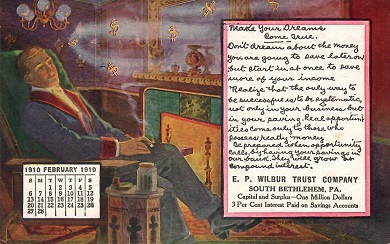 Make Your Dreams
Come True.
Don't dream about the money
you are going to save later on
but start in at once to save
more of your income
Realize that the only way to
be successful is to be systematic,
not only in your business but
in your saving. Real opportun-
ities come only to those who
possess ready money.
Be prepared when opportunity
calls, by having your savings in
our bank. They will grow at
compound interest.
E. P. WILBUR TRUST COMPANY
SOUTH BETHLEHEM, PA.
Capital and Surplus—One Million Dollars
3 Per Cent Interest Paid on Savings Accounts
1910 FEBRUARY 1910
S M T W T F S
1 2 3 4 5
6 7 8 9 10 11 12
13 14 15 16 17 18 19
20 21 22 23 24 25 26
27 28